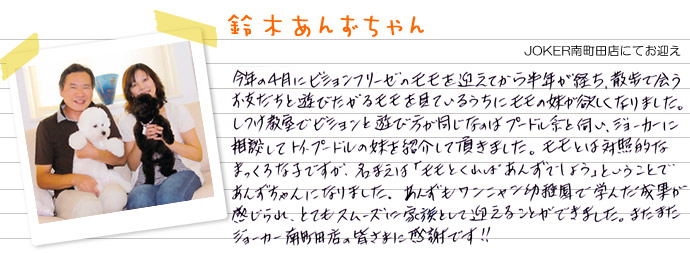 鈴木あんずちゃん
JOKER南町田店にてお迎え
今年の4月にビションフリーゼのモモを迎えてから半年が経ち、散歩で会う
お友だちと遊びたがるモモを見ているうちにモモの妹が欲しくなりました。
しつけ教室でビションと遊び方が同じなのはプードル系と伺い、ジョーカーに
相談してトイプードルの妹を紹介して頂きました。モモとは対照的な
まっくろな子ですが、名まえは「モモとくればあんずでしょう」ということで
あんずちゃんになりました。あんずもワンニャン幼稚園で学んだ成果が
感じられ、とてもスムーズに家族として迎えることができました。またまた
ジョーカー南町田店の皆さまに感謝です!!